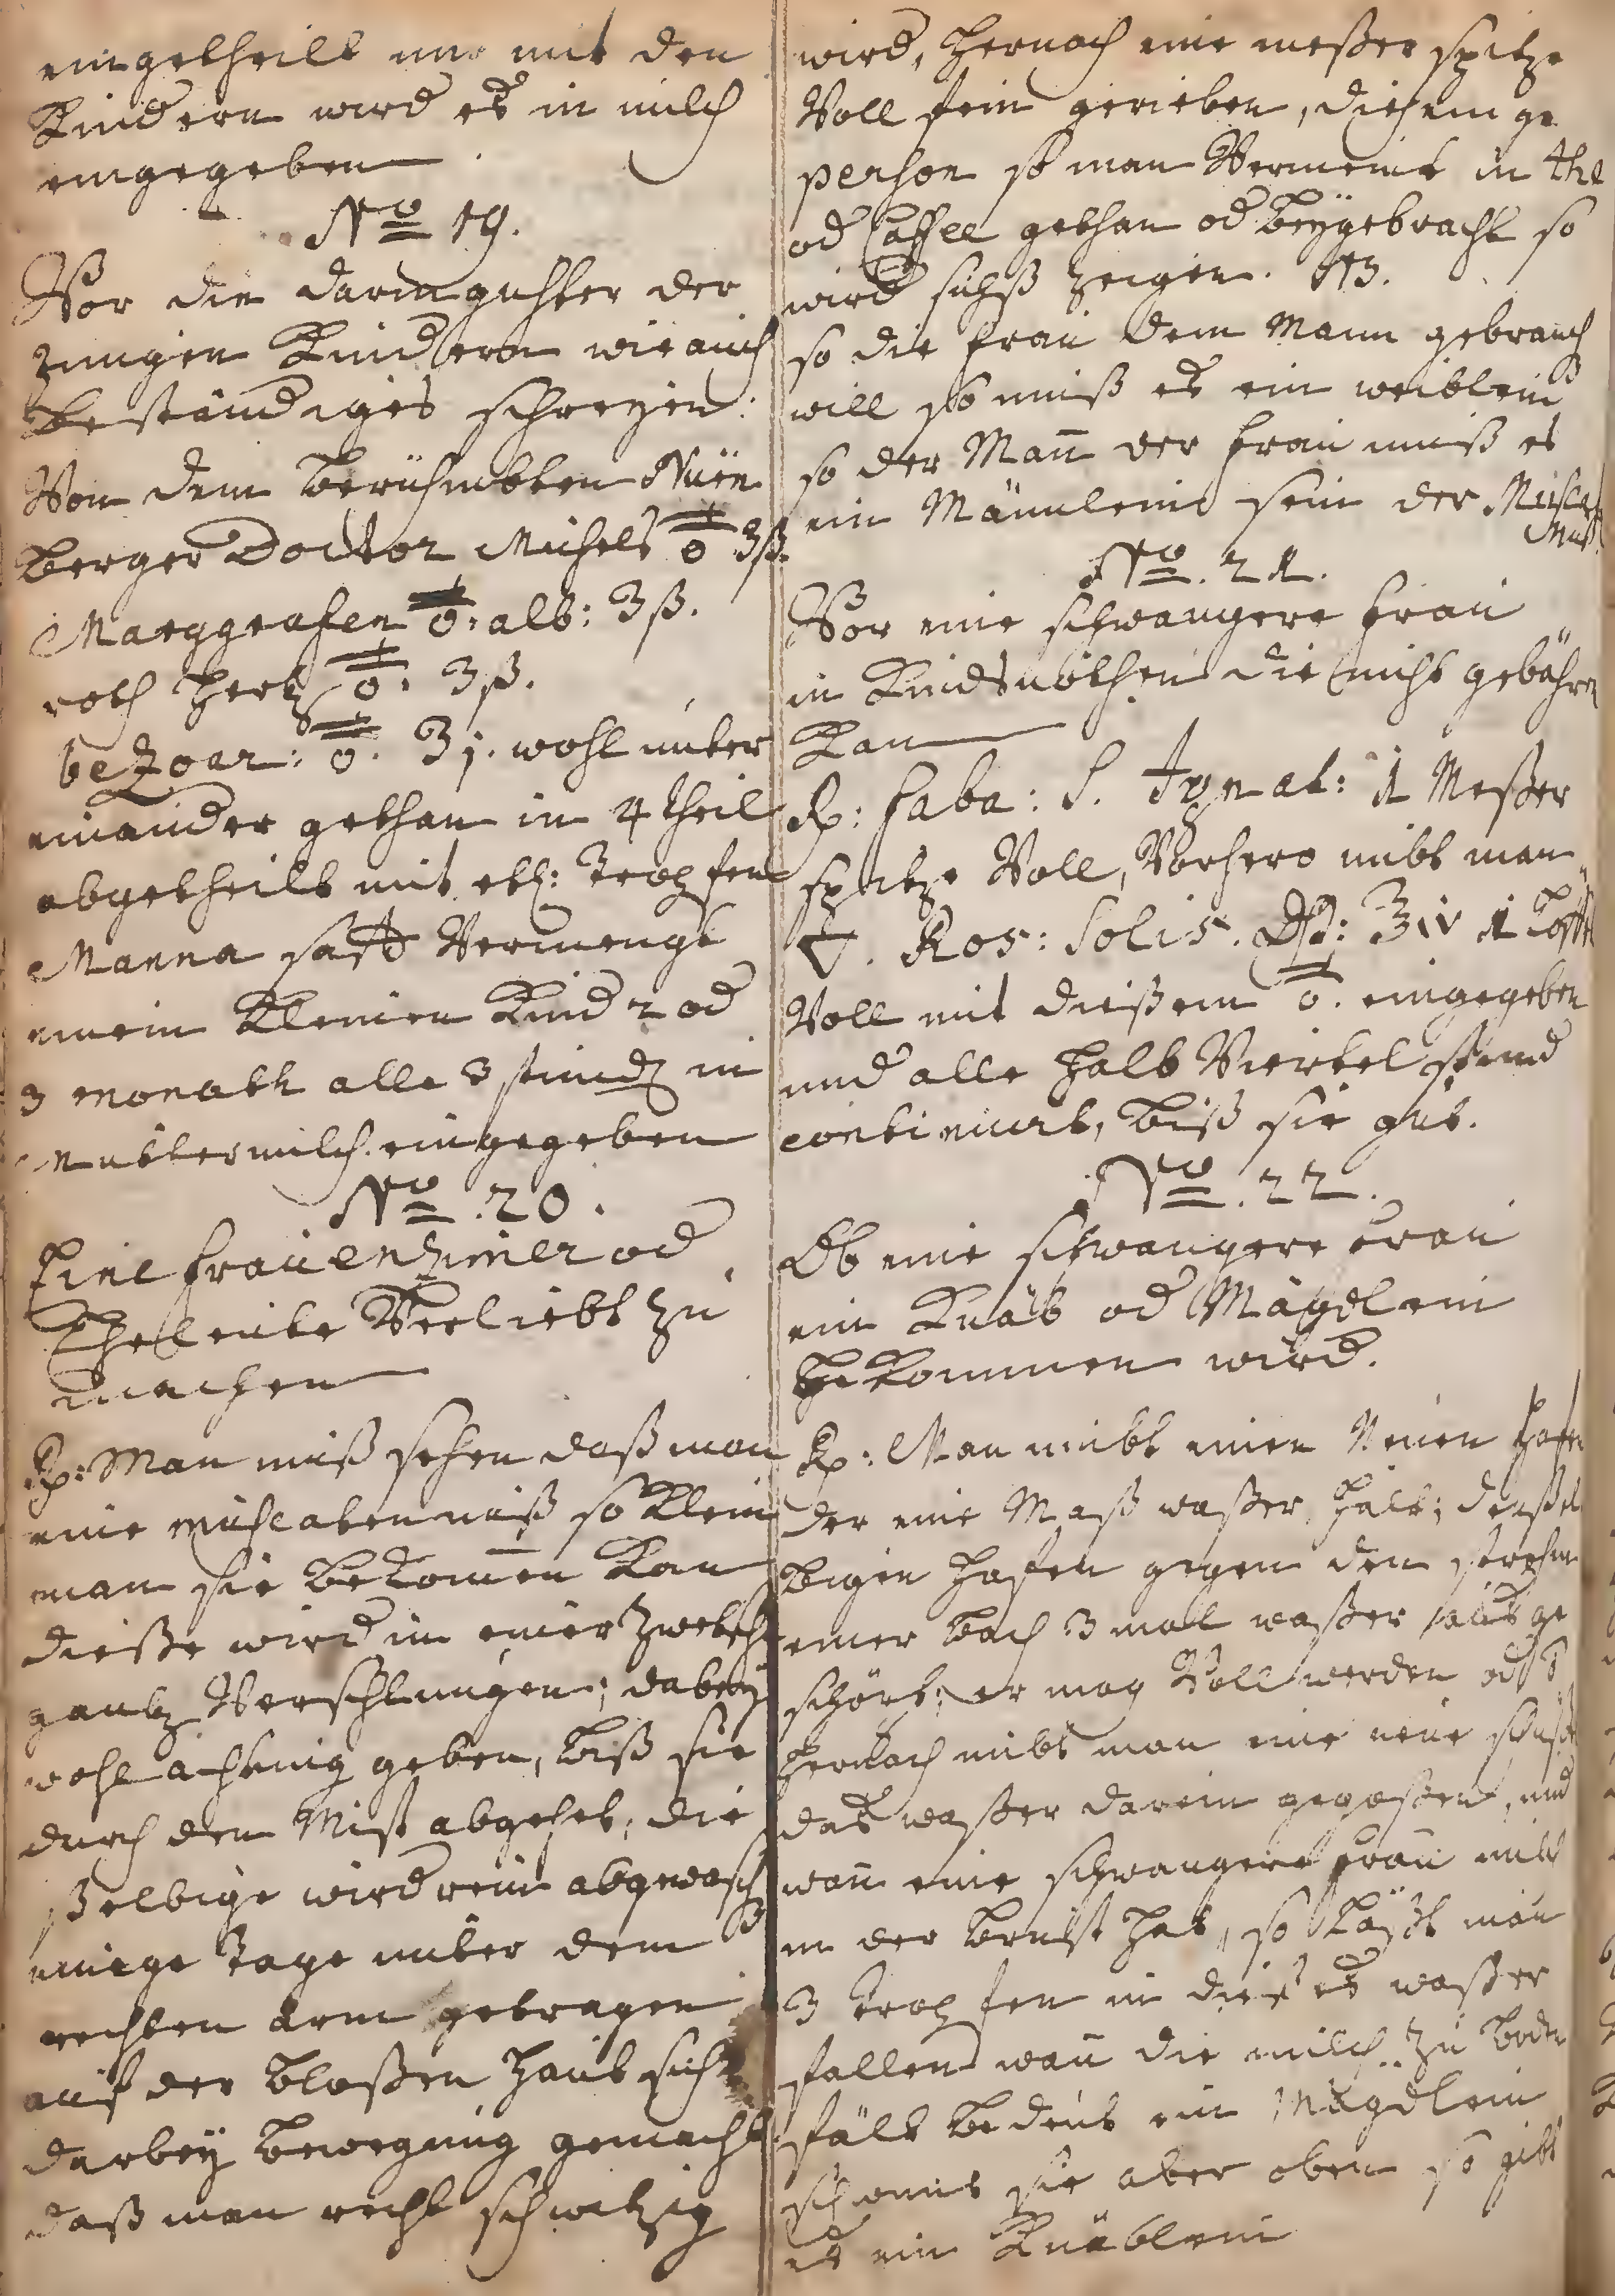 eingetheilt und mit den
Kindern wird es in milch
eingegeben
No 19.
Vor die darmgichter der
jungen Kindern wie auch
beständiges schreyen:
Von dem berühmbten Nürn
berger Doctor Michels 🜍 ʒß.
Marggrafen : alb: ʒß.
roth Hertz ʒß.
beZoar: ʒj. wohl unter
einander gethan in 4 theil
abgetheilt mit etl: Tropfen
Manna safft Vermengt
einem Kleinen Kind 2 od
3 monath alle 3 stund in
Muttermilch eingegeben
No. 20.
Eine Frauenzimer od
Eheleute Verliebt zu
machen
Rp: Man muß sehen daß man
eine muscatennuß so klein
man sie bekomen kan
dieße wird in einer Zwetsch
gantz Verschlungen; dabey
wohl achtung geben, biß sie
durch den Mist abgehet, die
ßelbige wird rein abgewasch
einige Tage unter dem
rechten arm getragen
auf der bloßen Haut sich
darbey bewegung gemacht
daß man recht schwitzig
wird, Hernach eine meßer spitze
Voll fein gerieben, diejenige
person so man Vermeint in the
od Caffee gethan od beygebracht so
wird sichß zeigen. NB.
so die Frau dem Mann gebrauch
will so muß es ein weiblein
so der Mañ der Frau muß es
ein Männlein sein der Muscat
Nuß.
No. 21.
Vor eine schwangere Frau
in Kindsnöthen die nicht gebähren
Kan
Rp: Faba: S. Ignat: 1 Meßer
spitze Voll, Vorhero nimbt man
Ros: Solis. ʒiv 1 Löffel
Voll mit dießem eingegeben
und alle Halb Viertel stund
continuirt, biß sie gut.
No. 22.
Ob eine schwangere Frau
ein Knäb od Mägdlein
bekommen wird.
Rp: Man nimbt einen Neuen Hafen
der eine Maß waßer Hält; denßel
bigen Hafen gegen den strohm
einer bach 3 mal waßer aus ge
schöpft; er mag Voll werden od
Hernach nimbt man eine neue schüßel
das waßer darein gegoßen, und
wañ eine schwangere Frau milch
in der brust Hat, so läßt man
3 tropfen in dieses waßer
fallen wañ die milch zu boden
fält bedeut ein Mägdlein
schwimt sie aber oben so gibt
es ein Knäblein